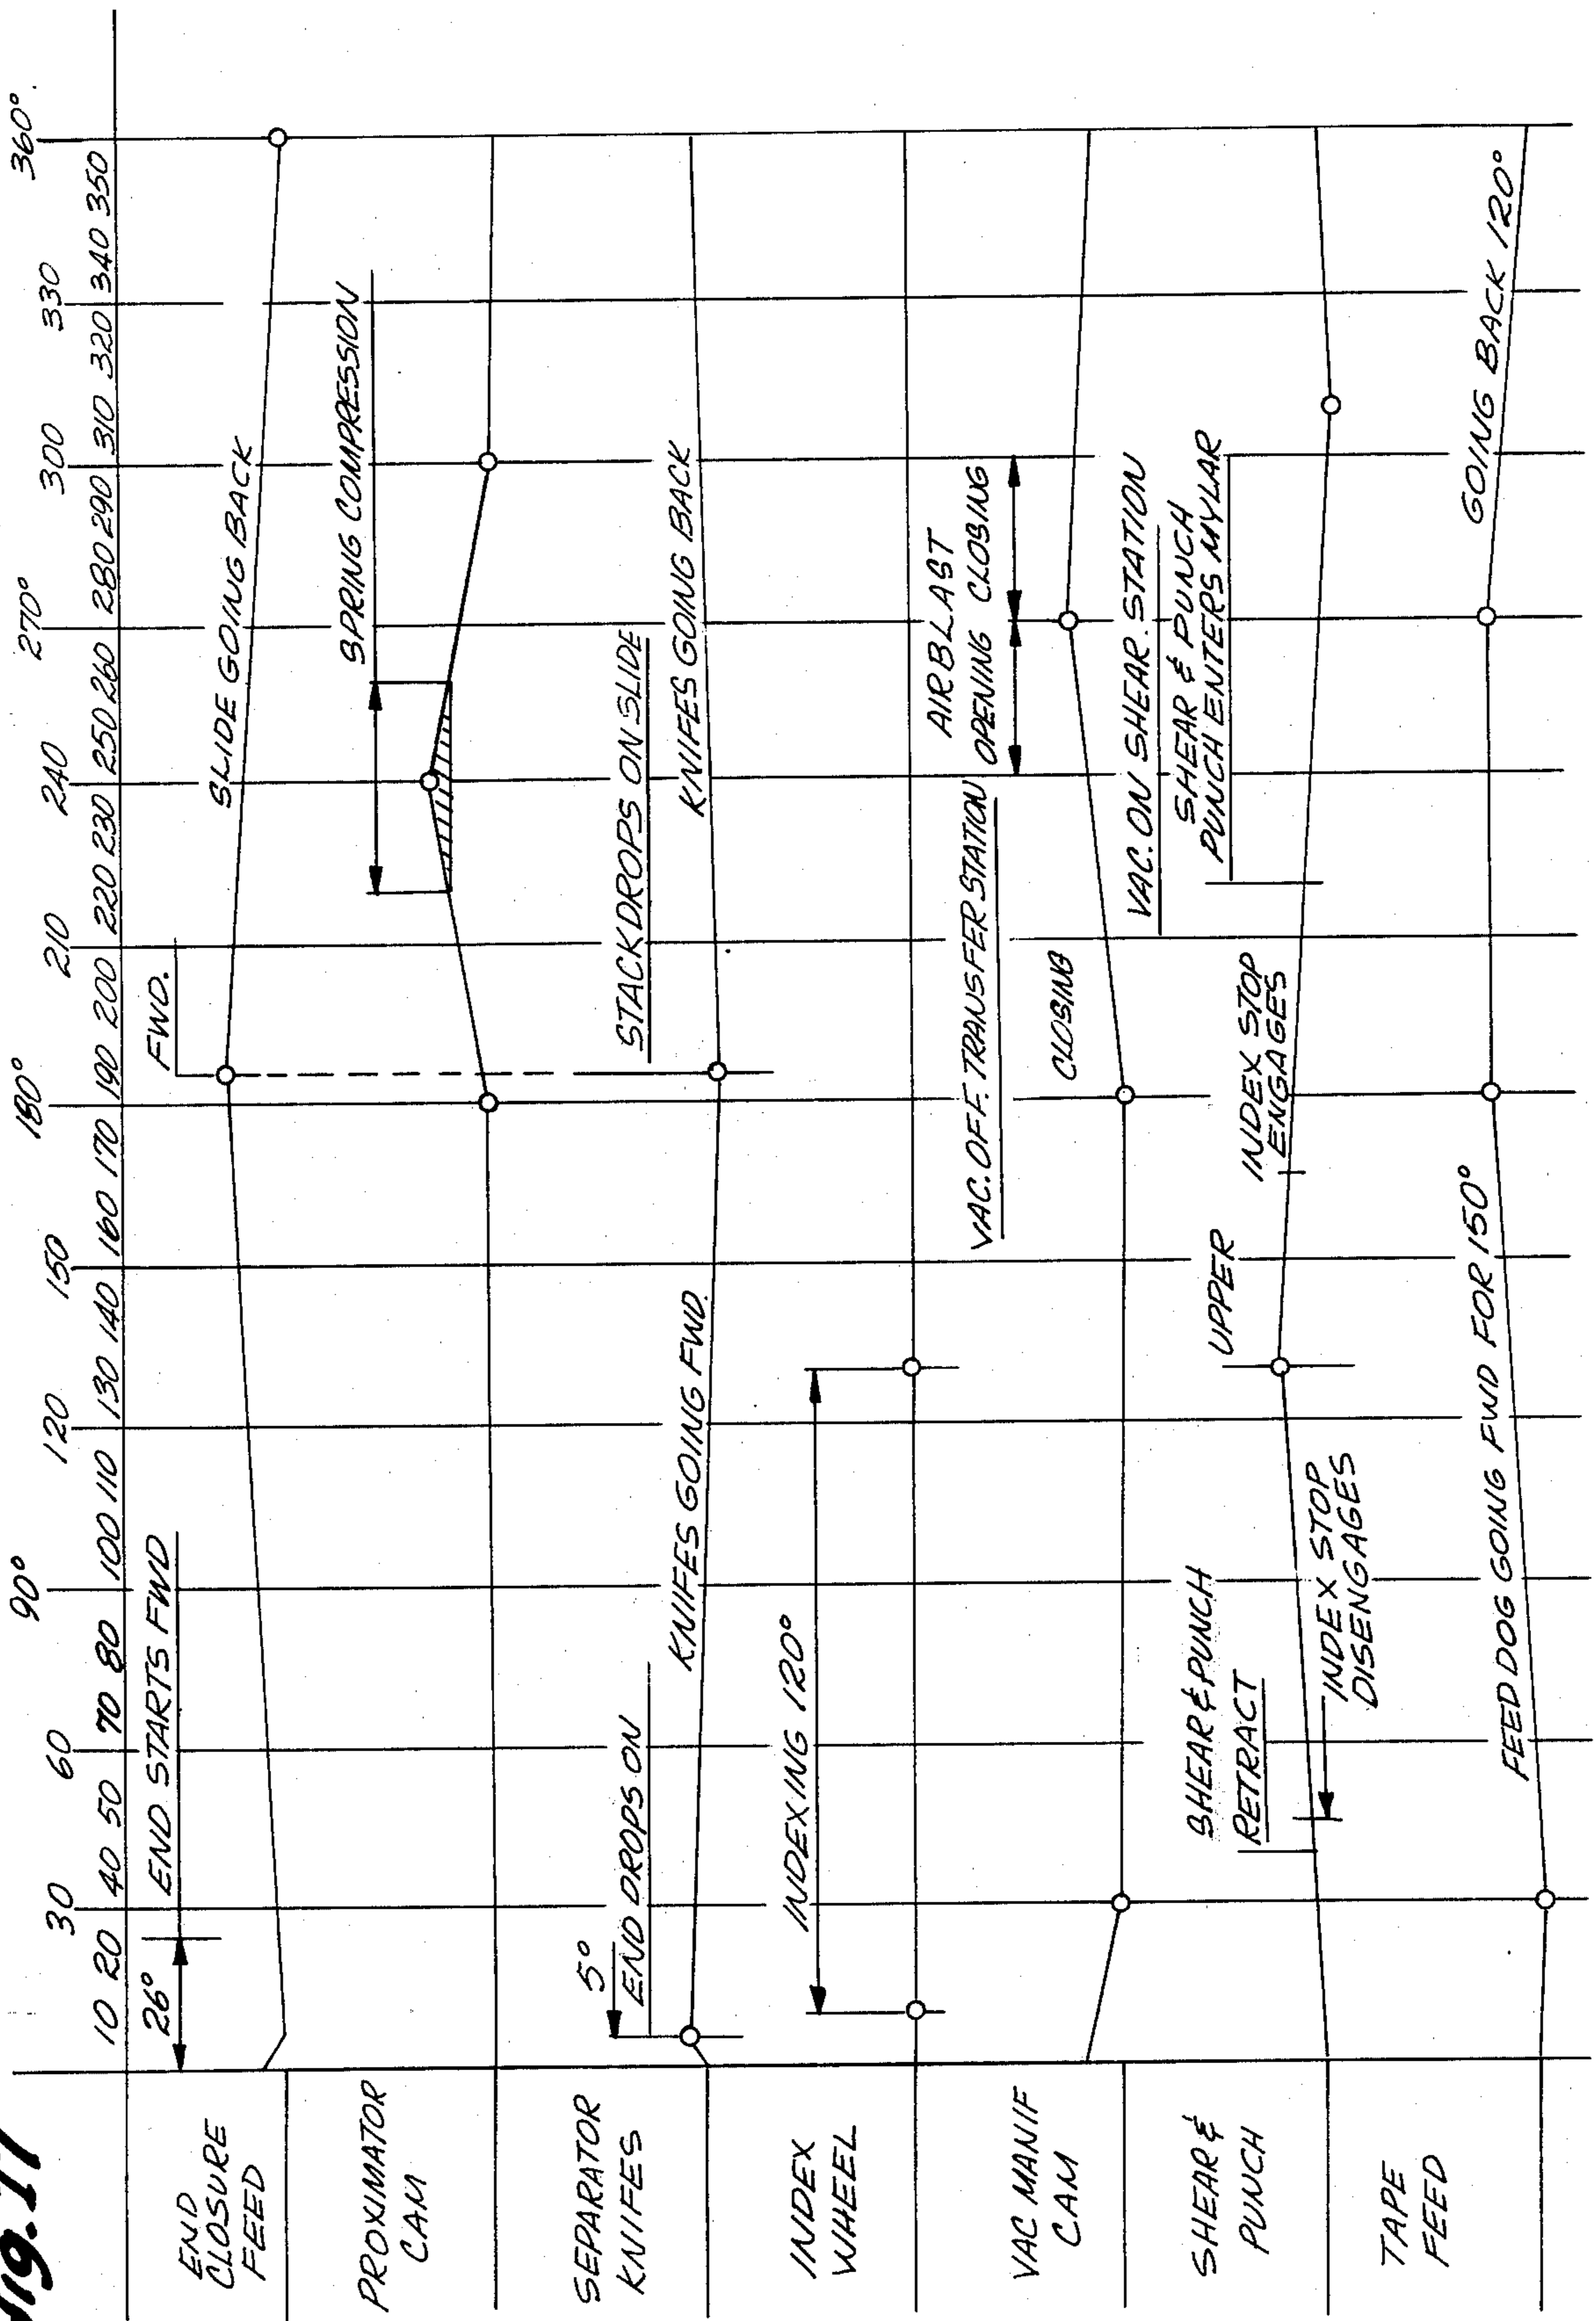 Fig. 17
30 60 90° 120 150 180° 210 240 270° 300 330 360°.
10 20 40 50 70 80 100 110 130 140 160 170 190 200 220 230 250 260 280 290 310 320 340 350
END
CLOSURE
FEED
26°
END STARTS FWD
FWD.
SLIDE GOING BACK
PROXIMATOR
CAM
SPRING COMPRESSION
SEPARATOR
KNIFES
5°
END DROPS ON
KNIFES GOING FWD.
STACK DROPS ON SLIDE
KNIFES GOING BACK
INDEX
WHEEL
INDEXING 120°
VAC MANIF
CAM
VAC. OFF. TRANSFER STATION
CLOSING
AIR BLAST
OPENING CLOSING
VAC. ON SHEAR. STATION
SHEAR &
PUNCH
SHEAR & PUNCH
RETRACT
INDEX STOP
DISENGAGES
UPPER
INDEX STOP
ENGAGES
SHEAR & PUNCH
PUNCH ENTERS MYLAR
TAPE
FEED
FEED DOG GOING FWD FOR 150°
GOING BACK 120°